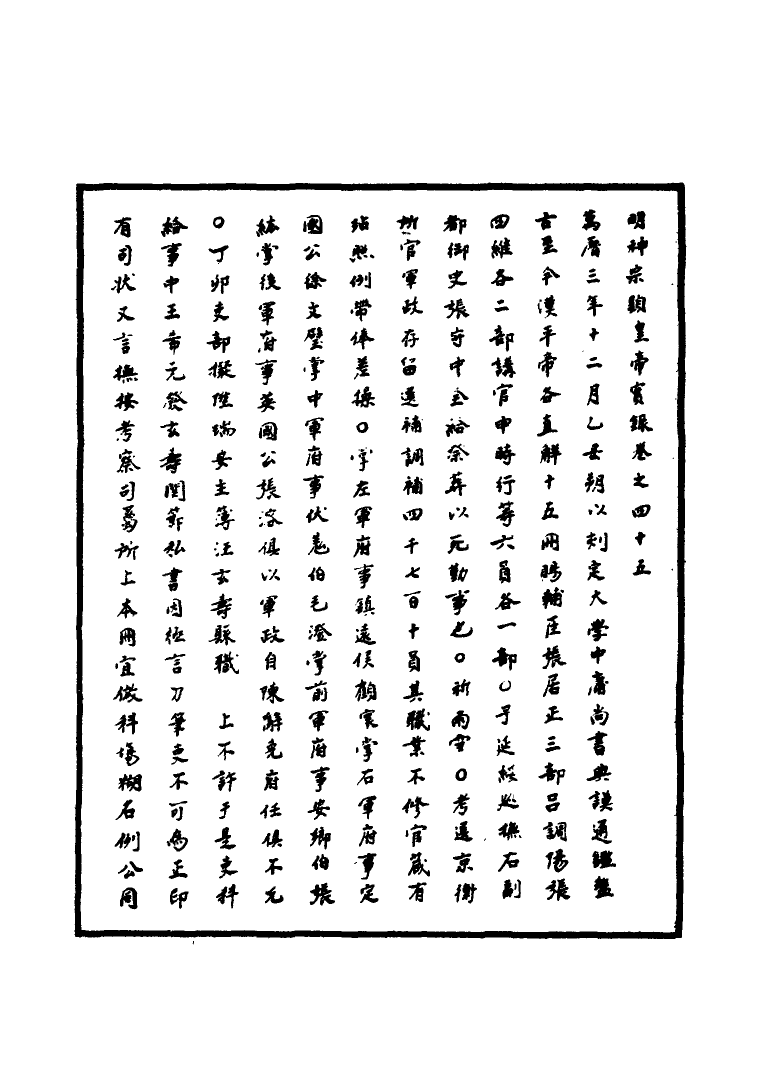 明神宗顯皇帝實錄卷之四十五
萬曆三年十二月乙丑朔以刻定大學中庸尚書典謨通鑑盤
古至令漢平帝各直解十五冊賜輔臣張居正三部呂調陽張
四維各二部講官申時行等六員各一部○予延綏巡撫右副
都御史張守中全給祭葬以死勤事也○祈雨雪○考選京衛
所官軍政存留選補調補四千七百十員其職業不修官箴有
玷照例帶俸差操○掌左軍府事鎮遠侯顧寰掌右軍府事定
國公徐文璧掌中軍府事伏羌伯毛澄掌前軍府事安鄉伯張
鋐掌後軍府事英國公張溶俱以軍政自陳解免府任俱不允
○丁卯吏部擬陞瑞安主簿汪玄壽縣職 上不許于是吏科
給事中王希元發玄壽関節私書因極言刀筆吏不可為正印
有司狀又言撫按考察司屬所上本冊宜倣科塲糊名例公同